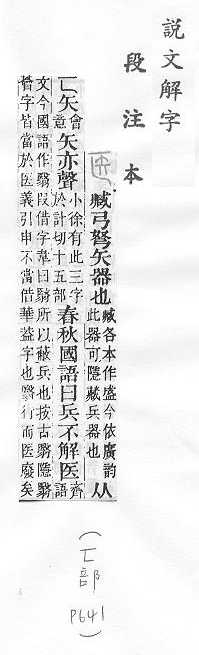 說文解字
段注本
医
臧弓弩矢器也臧各本作盛今依廣韵此器可隱藏兵器也从
匸矢會意矢亦聲小徐有此三字於計切十五部春秋國語曰兵不解医齊語
文今國語作翳叚借字韋曰翳所以蔽兵也按古翳隱翳
翳字皆當於医義引申不當借華葢字也翳行而医廢矣
(匸部
P641)